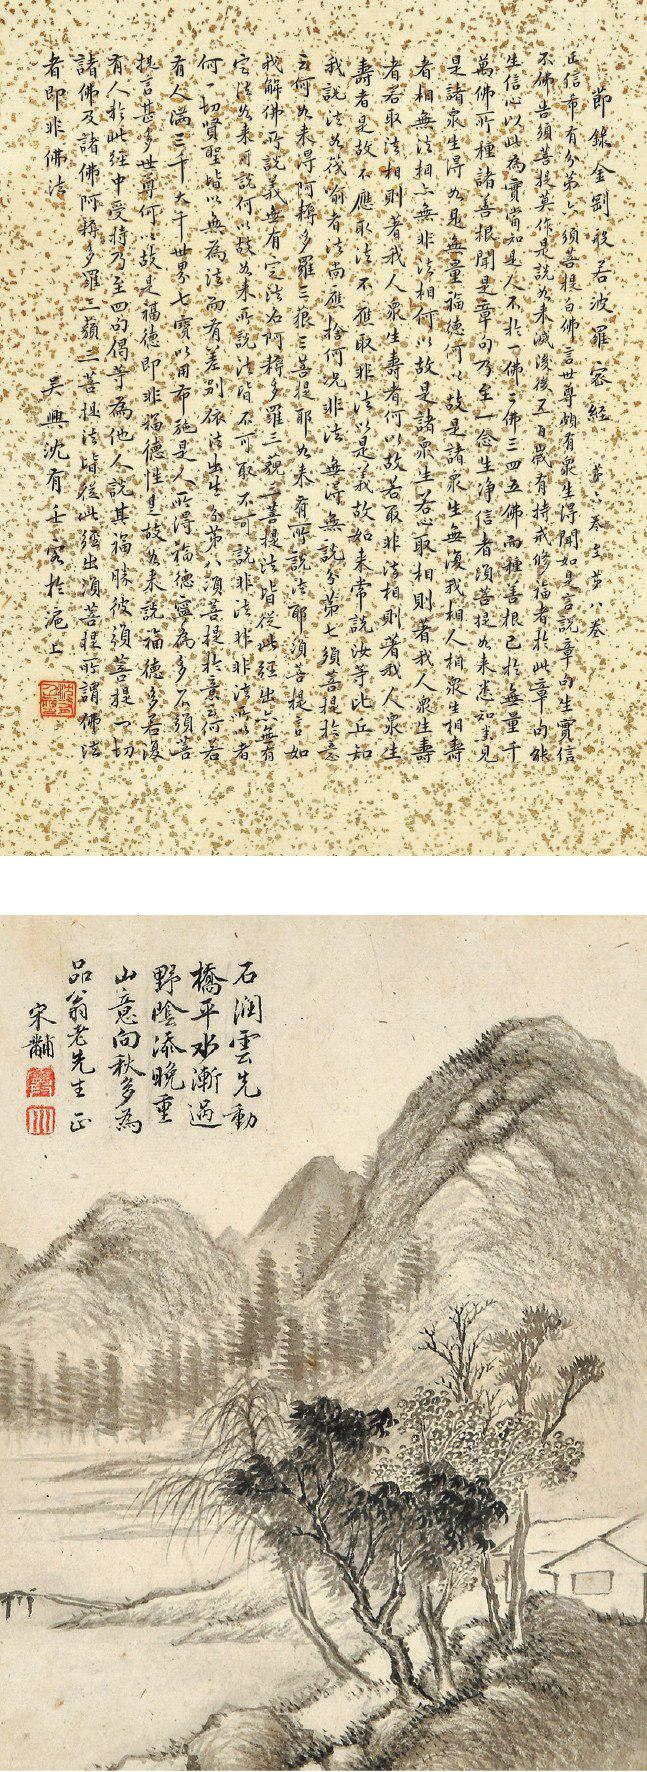 節錄金剛般若波羅密經 第六卷至第八卷
正信希有分第六須菩提白佛言世尊頗有眾生得聞如是言說章句生實信
不佛告須菩提莫作是說如來滅後後五百歲有持戒修福者於此章句能
生信心以此為實當知是人不於一佛二佛三四五佛而種善根已於無量千
萬佛所種諸善根聞是章句乃至一念生淨信者須菩提如來悉知悉見
是諸眾生得如是無量福德何以故是諸眾生無復我相人相眾生相壽
者相無法相亦無非法相何以故是諸眾生若心取相則著我人眾生壽
者若取法相則著我人眾生壽者何以故若取非法相則著我人眾生
壽者是故不應取法不應取非法以是義故如來常說汝等比丘知
我說法如筏喻者法尚應捨何況非法 無得無說分第七須菩提於意
云何如來得阿耨多羅三藐三菩提耶如來有所說法耶須菩提言如
我解佛所說義無有定法名阿耨多羅三藐三菩提法皆從此經出亦無有
定法如來可說何以故如來所說法皆不可取不可說非法非非法所以者
何一切賢聖皆以無為法而有差別依法出生分第八須菩提於意云何若
有人滿三千大千世界七寶以用布施是人所得福德寧為多不須菩
提言甚多世尊何以故是福德即非福德性是故如來說福德多若復
有人於此經中受持乃至四句偈等為他人說其福勝彼須菩提一切
諸佛及諸佛阿耨多羅三藐三菩提法皆從此經出須菩提所謂佛法
者即非佛法 吳興沈有壬寫於滬上
石潤雲先動
橋平水漸過
野陰添晚重
山意向秋多為
品翁老先生正
宋黼